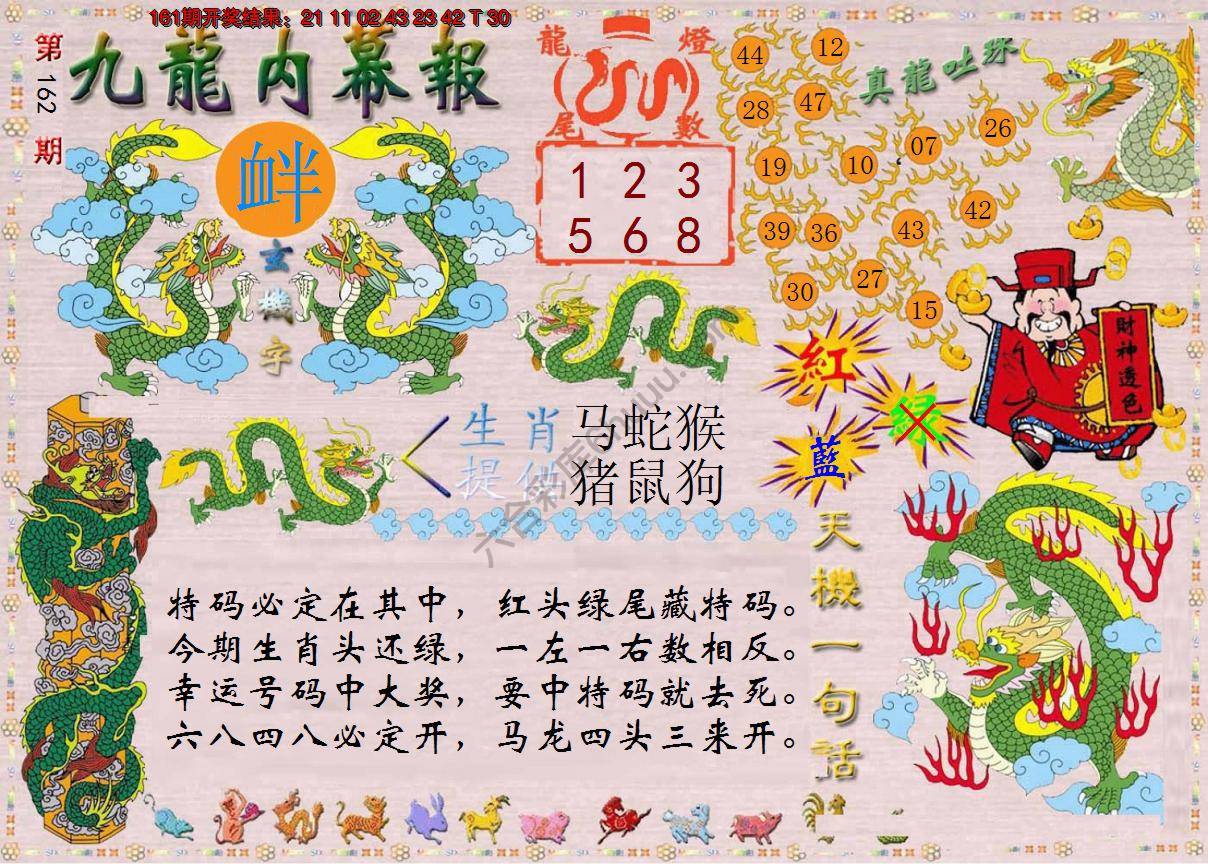 161期开奖结果：21 11 02 43 23 42 T 30
第162期
九龍内幕報
衅
玄機字
龍燈
尾數
1 2 3
5 6 8
真龍吐珠
44
12
28
47
26
07
19
10
42
39
36
43
27
30
15
紅
绿
藍
財神透色
生肖 马蛇猴
提供 猪鼠狗
特码必定在其中，红头绿尾藏特码。
今期生肖头还绿，一左一右数相反。
幸运号码中大奖，要中特码就去死。
六八四八必定开，马龙四头三来开。
天機一句話